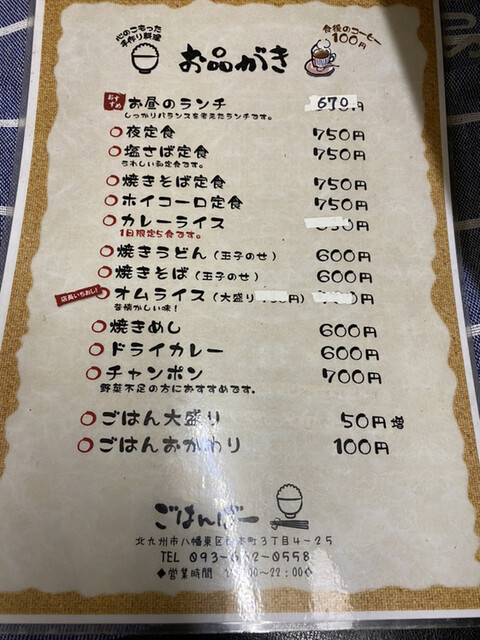 心のこもった
手作り料理
お品がき
食後のコーヒー
100円
おすすめ お昼のランチ 670円
しっかりバランスを考えたランチです。
夜定食 750円
塩さば定食 750円
うれしい和定食です。
焼きそば定食 750円
ホイコーロ定食 750円
カレーライス 円
1日限定5食です。
焼きうどん(玉子のせ) 600円
焼きそば(玉子のせ) 600円
店長いちおし! オムライス(大盛り 円) 円
昔懐かしい味!
焼きめし 600円
ドライカレー 600円
チャンポン 700円
野菜不足の方におすすめです。
ごはん大盛り 50円増
ごはんおかわり 100円
ごはんばー
北九州市八幡東区 本町3丁目4-25
TEL 093-6 2-0558
◆営業時間 1 :00~22:00